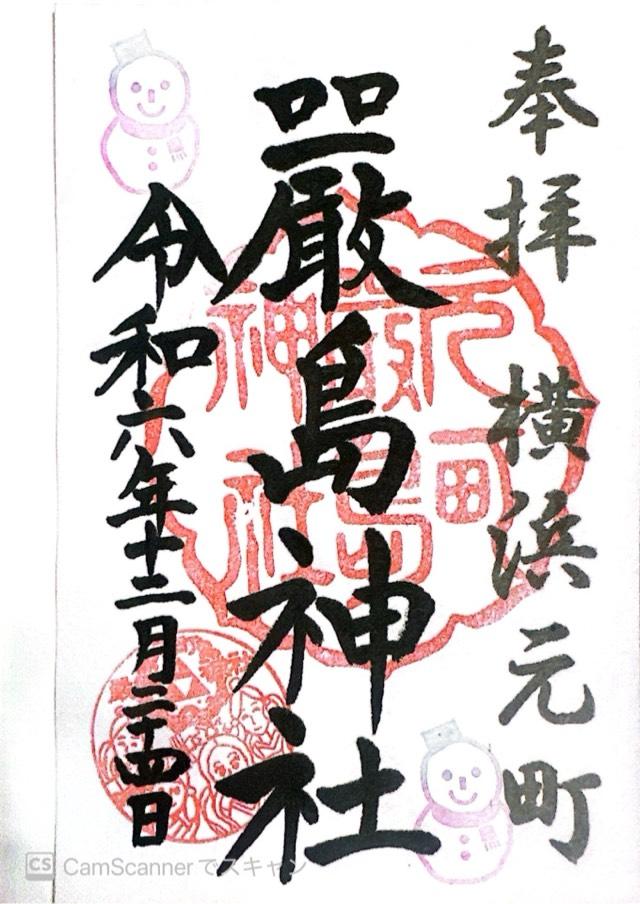 奉拝 横浜元町
厳島神社
令和六年十二月二十四日
元町
厳島
神社
CS CamScannerでスキャン